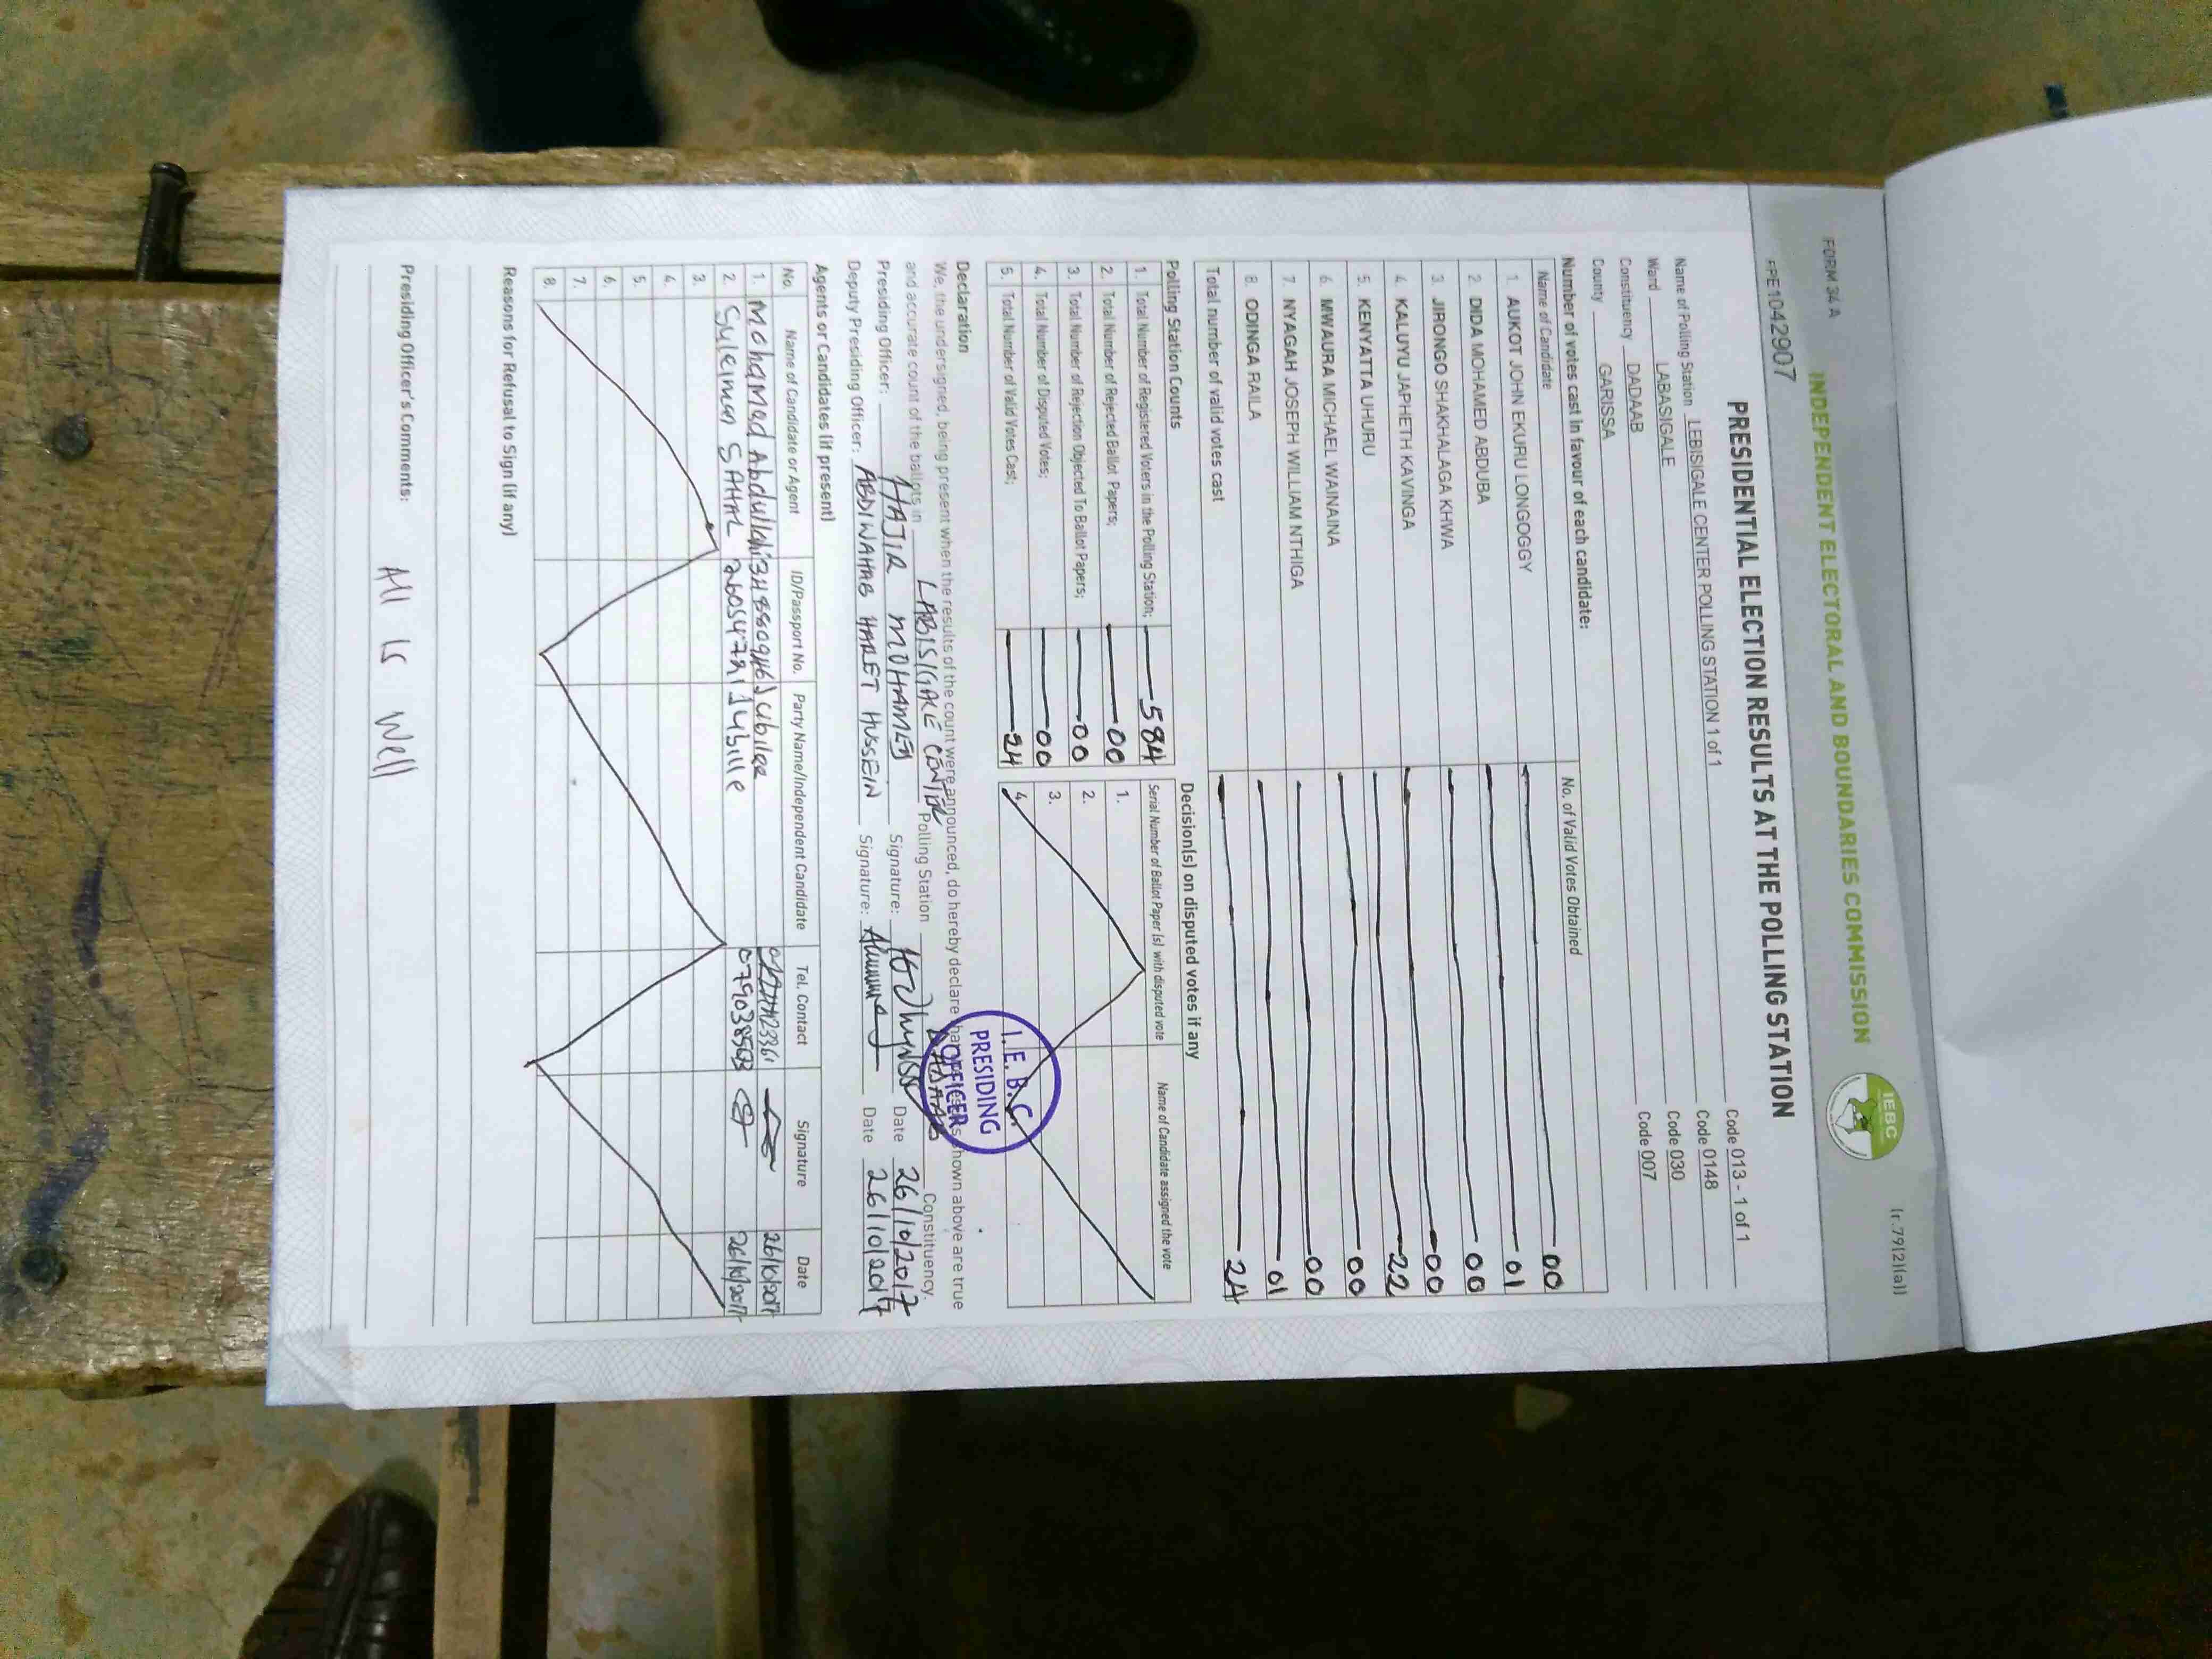 FORM 34A
(r.79(2)(a))
INDEPENDENT ELECTORAL AND BOUNDARIES COMMISSION
IEBC
PPE1042907
PRESIDENTIAL ELECTION RESULTS AT THE POLLING STATION
Name of Polling Station LEBISIGALE CENTER POLLING STATION 1 of 1 Code 013 - 1 of 1
Ward LABASIGALE Code 0148
Constituency DADAAB Code 030
County GARISSA Code 007
Number of votes cast in favour of each candidate:
Name of Candidate No. of Valid Votes Obtained
1. AUKOT JOHN EKURU LONGOGGY 00
2. DIDA MOHAMED ABDUBA 01
3. JIRONGO SHAKHALAGA KHWA 00
4. KALUYU JAPHETH KAVINGA 00
5. KENYATTA UHURU 22
6. MWAURA MICHAEL WAINAINA 00
7. NYAGAH JOSEPH WILLIAM NTHIGA 00
8. ODINGA RAILA 01
Total number of valid votes cast 24
Polling Station Counts
1. Total Number of Registered Voters in the Polling Station; 584
2. Total Number of Rejected Ballot Papers; 00
3. Total Number of Rejection Objected To Ballot Papers; 00
4. Total Number of Disputed Votes; 00
5. Total Number of Valid Votes Cast; 24
Decision(s) on disputed votes if any
Serial Number of Ballot Paper (s) with disputed vote Name of Candidate assigned the vote
1.
2.
3.
4.
Declaration
We, the undersigned, being present when the results of the count were announced, do hereby declare that the results shown above are true
and accurate count of the ballots in LABISIGALE CENTRE Polling Station DADAAB Constituency.
Presiding Officer: HAJIR MOHAMED Signature: Date 26/10/2017
Deputy Presiding Officer: ABDIWAHAB HARET HUSSEIN Signature: Date 26/10/2017
I.E.B.C.
PRESIDING
OFFICER
Agents or Candidates (if present)
No. Name of Candidate or Agent ID/Passport No. Party Name/Independent Candidate Tel. Contact Signature Date
1. Mohamed Abdullahi Jubilee 26/10/2017
2. Suleiman SAHAL 26054721 Jubille 26/10/2017
3.
4.
5.
6.
7.
8.
Reasons for Refusal to Sign (if any)
Presiding Officer's Comments: All is Well